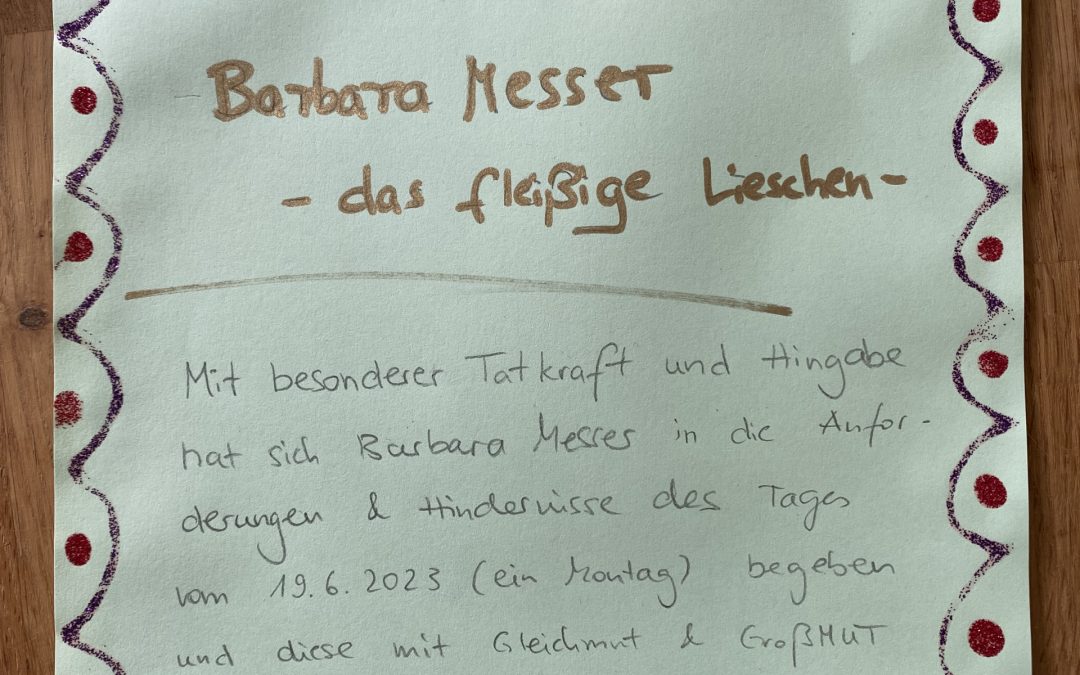 Barbara Messer
- das fleißige Lieschen -
Mit besonderer Tatkraft und Hingabe
hat sich Barbara Messer in die Anfor-
derungen & Hindernisse des Tages
vom 19.6.2023 (ein Montag) begeben
und diese mit Gleichmut & GroßMUT